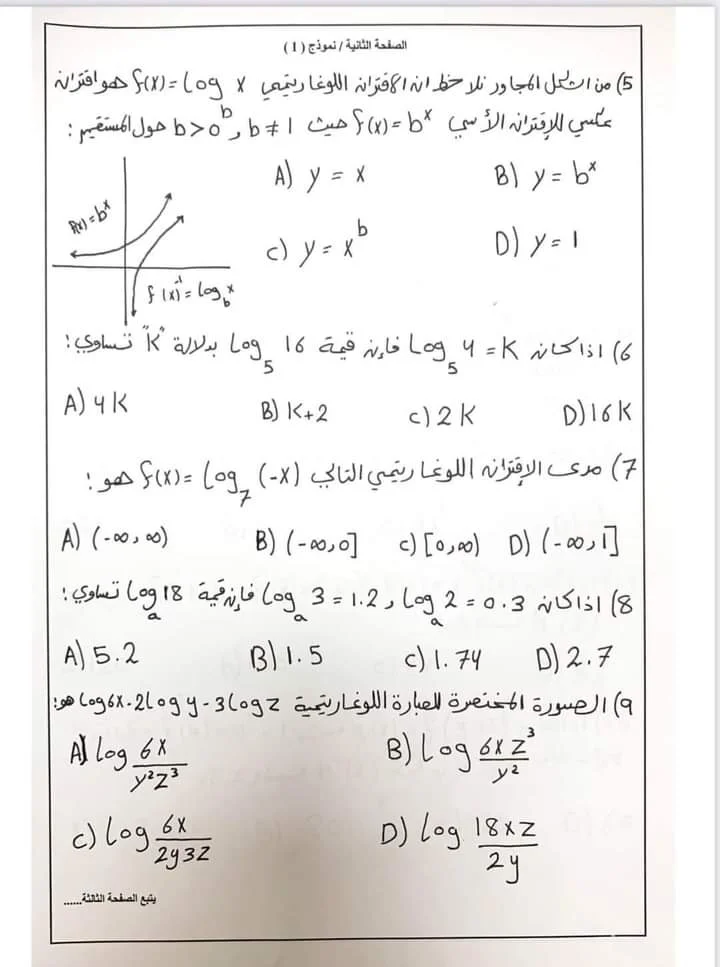 الصفحة الثانية / نموذج ( 1 )
5) من الشكل المجاور نلاحظ ان الاقتران اللوغاريتمي f(x) = Log x هو اقتران
b
عكسي للإقتران الأسي f(x) = bˣ حيث b > 0 , b ≠ 1 حول المستقيم :
A) y = x
B) y = bˣ
C) y = xᵇ
D) y = 1
f(x) = bˣ
f⁻¹(x) = log_b x
6) اذا كان Log₅ 4 = K فإن قيمة Log₅ 16 بدلالة "K" تساوي :
A) 4K B) K+2 C) 2K D) 16K
7) مدى الإقتران اللوغاريتمي التالي f(x) = Log₇ (-x) هو :
A) (-∞, ∞) B) (-∞, 0] C) [0, ∞) D) (-∞, 1]
8) اذا كان Logₐ 2 = 0.3 , Logₐ 3 = 1.2 فإن قيمة Logₐ 18 تساوي :
A) 5.2 B) 1.5 C) 1.74 D) 2.7
9) الصورة المختصرة للعبارة اللوغاريتمية Log 6x - 2Log y - 3Log z هو :
A) log 6x / y²z³
B) Log 6xz³ / y²
C) Log 6x / 2y3z
D) Log 18xz / 2y
يتبع الصفحة الثالثة......